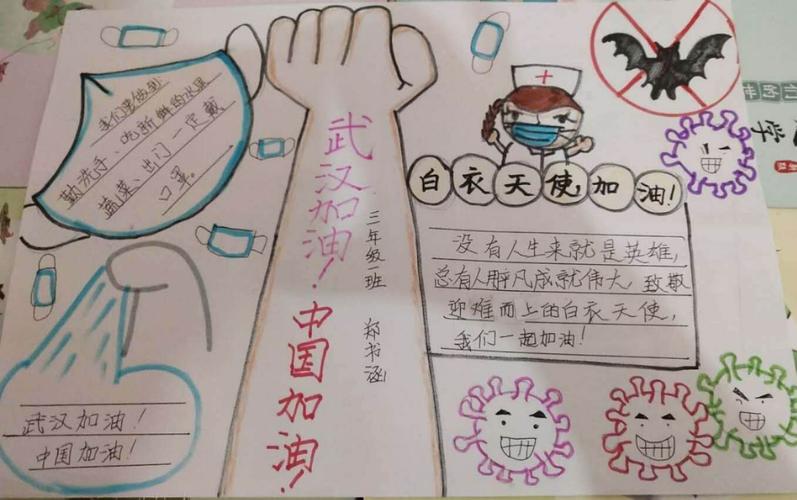 我们要做到:
勤洗手、吃新鲜的水果
蔬菜、出门一定戴
口罩。
武汉加油!
中国加油!
武汉加油!
中国加油!
三年级一班 郑书涵
白衣天使,加油!
没有人生来就是英雄,
总有人凡成就伟大,致敬
迎难而上的白衣天使,
我们一起加油!
学